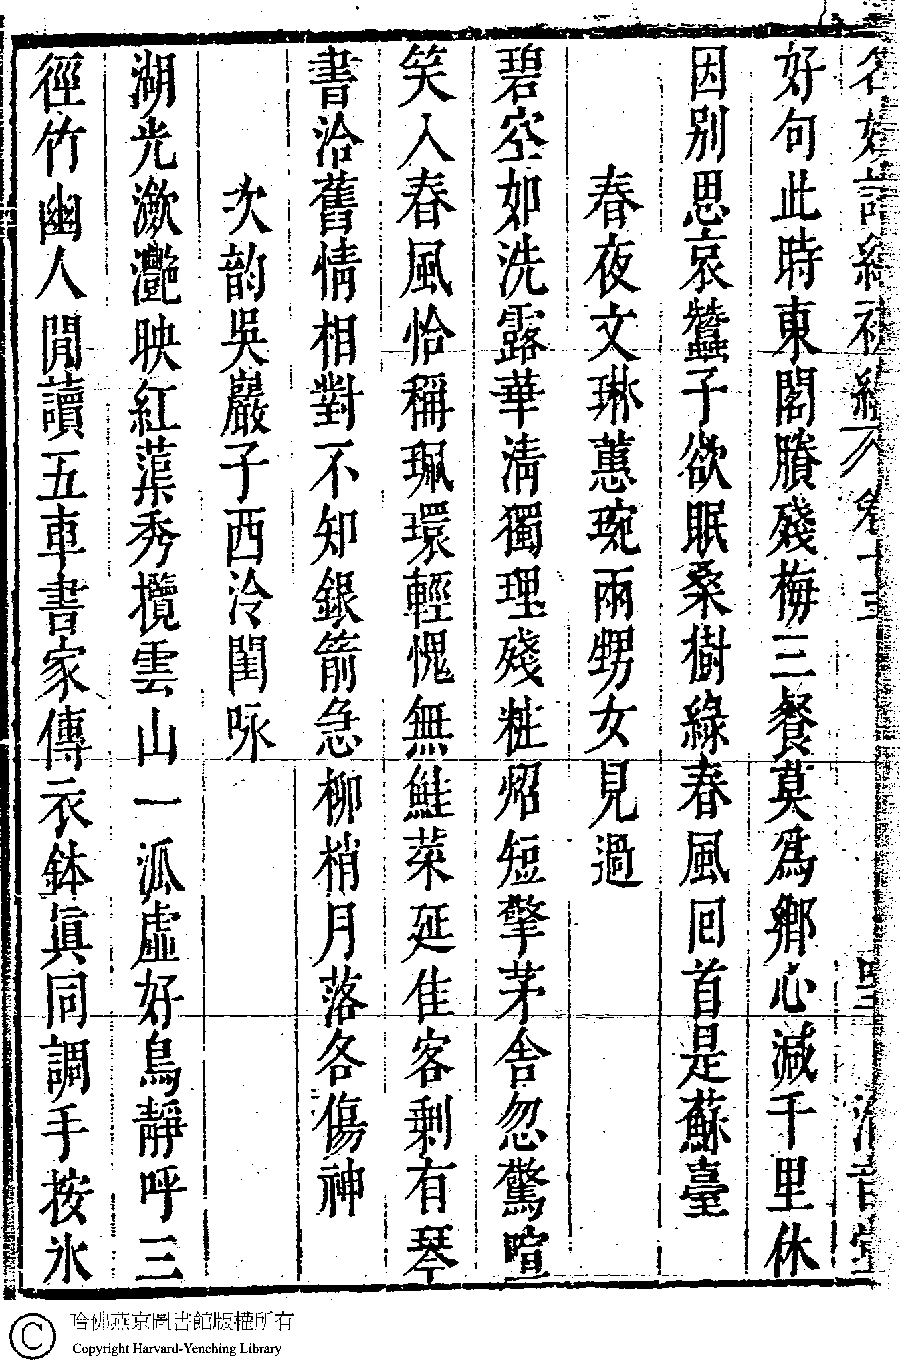 名媛詩緯初編 卷十三
好句此時東閣賸殘梅三餐莫爲鄉心減千里休
因別思哀蠶子欲眠桑樹綠春風回首是蘇臺
春夜文琳蕙琬兩甥女見過
碧空如洗露華清獨理殘粧炤短檠茅舍忽驚喧
笑入春風恰稱珮環輕愧無鮭菜延佳客剩有琴
書洽舊情相對不知銀箭急柳梢月落各傷神
次韵吳巖子西泠閨咏
湖光潋灩映紅蕖秀攬雲山一派虛好鳥靜呼三
徑竹幽人閒讀五車書家傳衣鉢眞同調手按氷
哈佛燕京圖書館版權所有
Copyright Harvard-Yenching Library